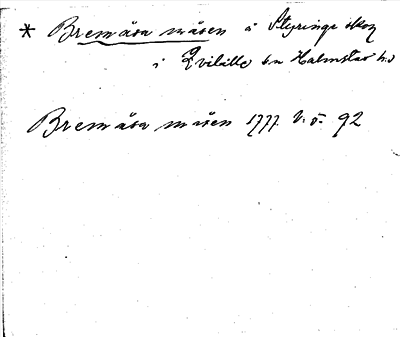 * Bremåsa måsen å Styrings skog
i Qvibille sn Halmstad h:d
Bremåsa måsen 1777 92